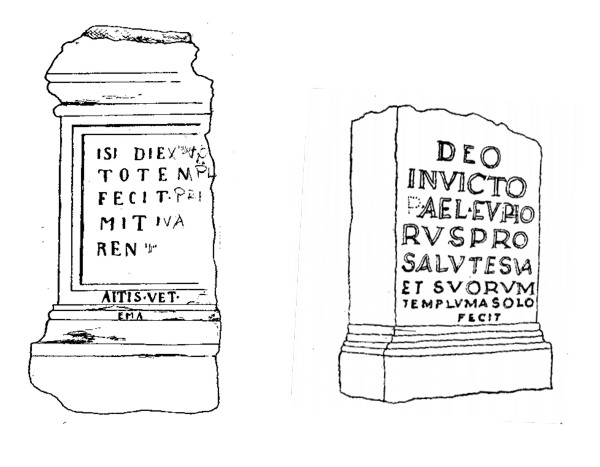 ISI DIEX
TOTEMPL
FECIT·PRI
MITIVA
REN
AITIS·VET·
EMA
DEO
INVICTO
PAEL·EVPIO
RVSPRO
SALVTESVA
ET SVORVM
TEMPLVMASOLO
FECIT